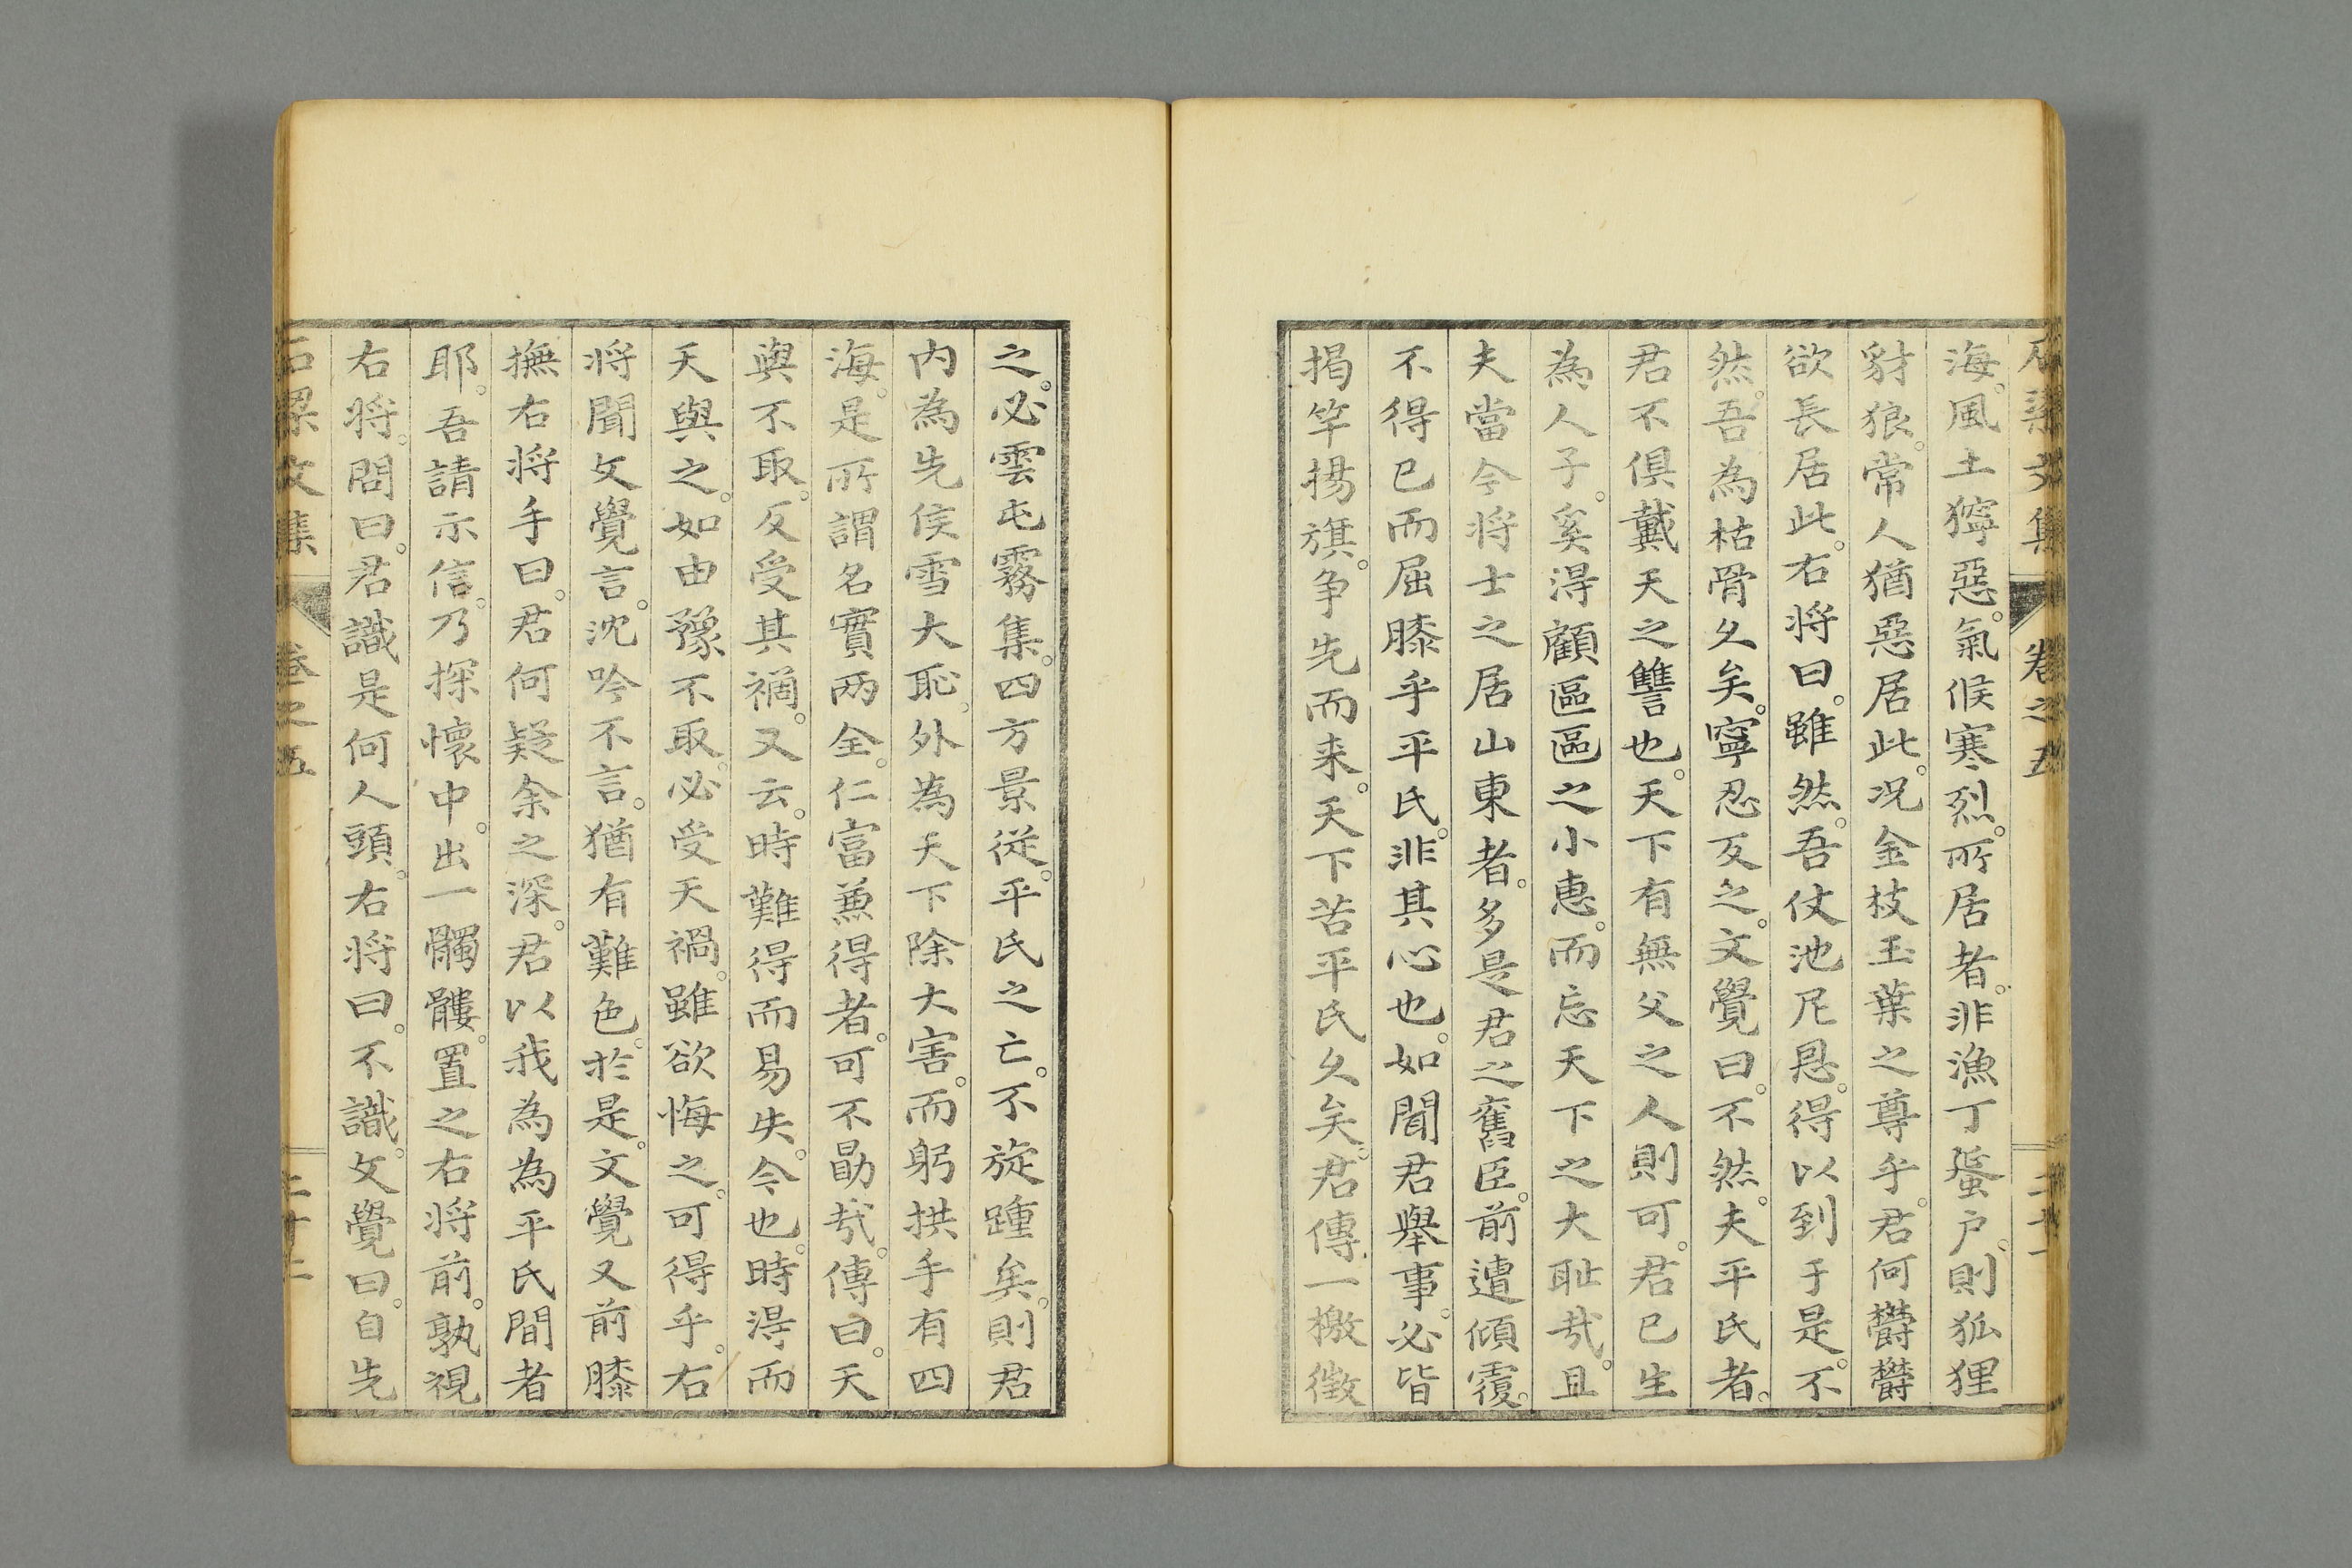 石梁文集 卷之五 二十一
海。風土獰惡。氣候寒烈。所居者。非漁丁蜑户。則狐狸
豺狼。常人猶惡居此。况金枝玉葉之尊乎。君何欝欝
欲長居此。右将曰。雖然。吾仗池尼恩。得以到于是。不
然。吾為枯骨久矣。寧忍反之。文覺曰。不然。夫平氏者。
君不俱戴天之讐也。天下有無父之人則可。君已生
為人子。奚得顧區區之小惠。而忘天下之大耻哉。且
夫當今将士之居山東者。多是君之舊臣。前遭傾覆。
不得已而屈膝乎平氏。非其心也。如聞君舉事。必皆
揭竿揚旗。争先而来。天下苦平氏久矣。君傳一檄徴
之。必雲屯霧集。四方景従。平氏之亡。不旋踵矣。則君
内為先侯雪大恥。外為天下除大害。而躬拱手有四
海。是所謂名實兩全。仁富兼得者。可不勖哉。傳曰。天
與不取。反受其禍。又云。時難得而易失。今也。時得而
天與之。如由豫不取。必受天禍。雖欲悔之。可得乎。右
将聞文覺言。沈吟不言。猶有難色。於是。文覺又前膝
撫右将手曰。君何疑余之深。君以我為為平氏間者
耶。吾請示信。乃探懷中。出一髑髏。置之右将前。孰視
右将。問曰。君識是何人頭。右将曰。不識。文覺曰。自先
石梁文集 卷之五 二十二